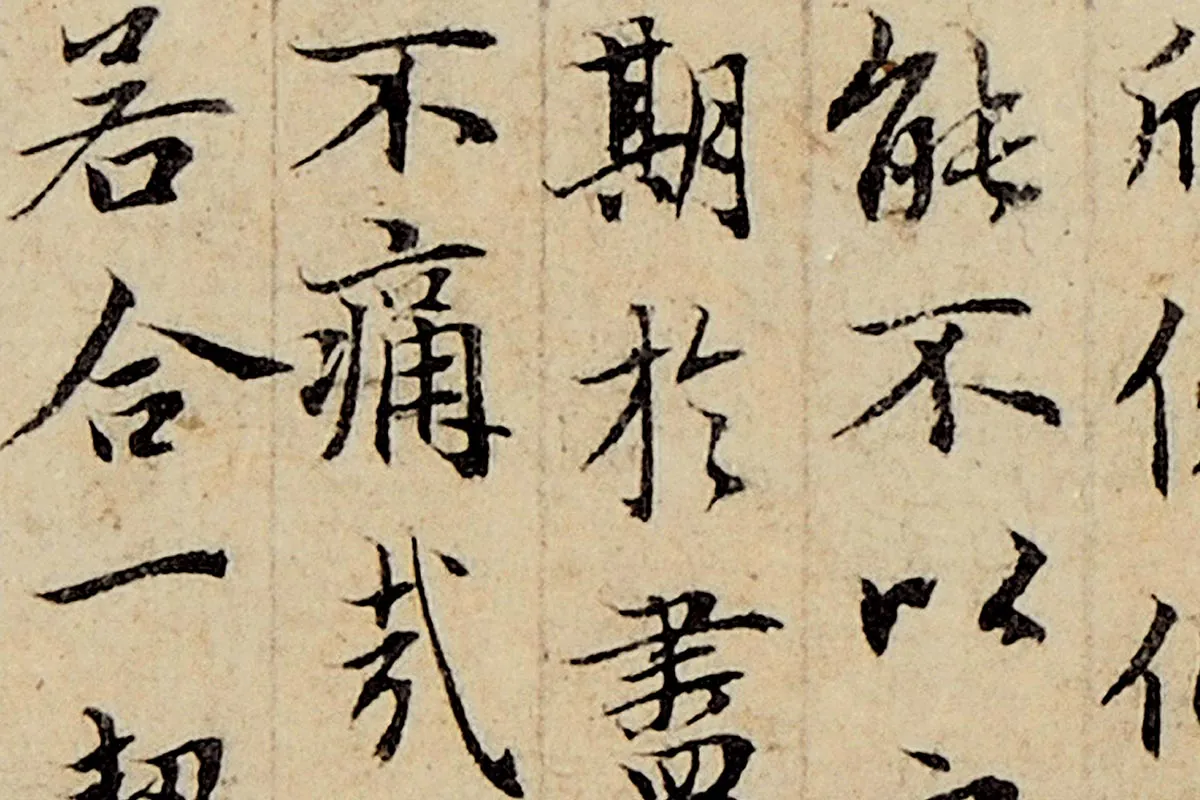 能不以
期於盡
不痛哉
若合一契